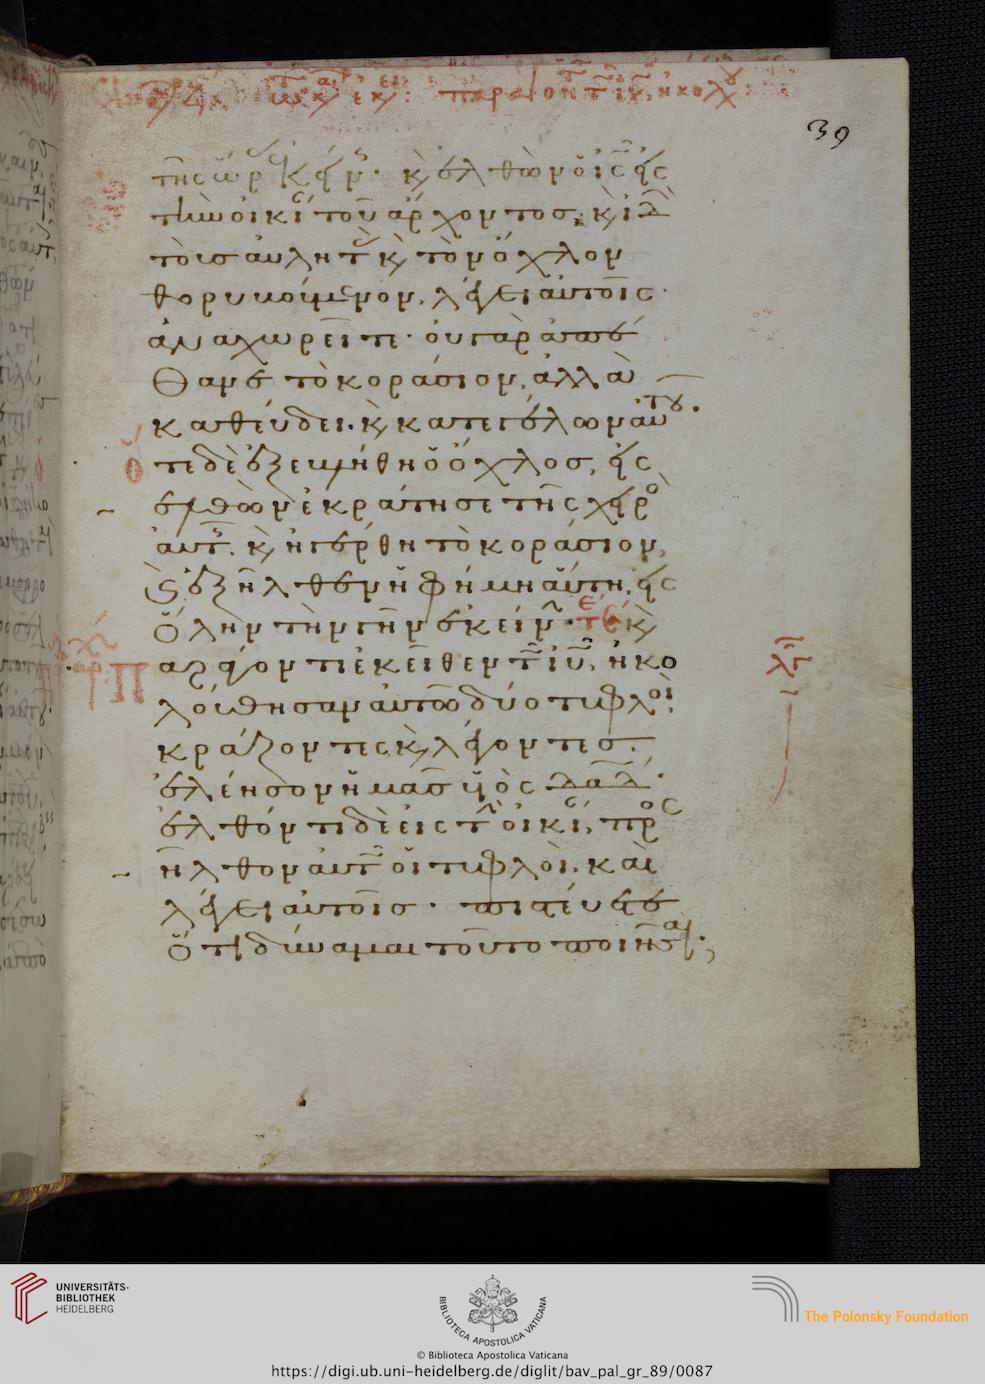 39
τῆς ὥρας ἐκείνης· κ, ἐλθὼν ὁ ις εἰς
τὴν οἰκίαν τοῦ ἄρχοντος, κ, ἰδὼν
τοὺς αὐλητὰς κ, τὸν ὄχλον
θορυβούμενον, λέγει αὐτοῖς·
ἀναχωρεῖτε· οὐ γὰρ ἀπέ
θανε τὸ κοράσιον, ἀλλὰ
καθεύδει. κ, κατεγέλων αὐτοῦ.
ὅτε δὲ ἐξεβλήθη ὁ ὄχλος, εἰς
ελθὼν ἐκράτησε τῆς χειρὸς
αὐτῆς. κ, ἠγέρθη τὸ κοράσιον,
κ, ἐξῆλθεν ἡ φήμη αὕτη εἰς
ὅλην τὴν γῆν ἐκείνην· τέ κ,
Παράγοντι ἐκεῖθεν τῶ ιυ, ἠκο
λούθησαν αὐτῶ δύο τυφλοὶ
κράζοντες κ, λέγοντες·
ἐλέησον ἡμᾶς υἱὸς δαδ·
ἐλθόντι δὲ εἰς τὴν οἰκίαν, προς
ῆλθον αὐτῶ οἱ τυφλοὶ, καὶ
λέγει αὐτοῖς· πιστεύετε
ὅτι δύναμαι τοῦτο ποιῆσαι;
UNIVERSITÄTS-
BIBLIOTHEK
HEIDELBERG
BIBLIOTECA APOSTOLICA VATICANA
The Polonsky Foundation
© Biblioteca Apostolica Vaticana
https://digi.ub.uni-heidelberg.de/diglit/bav_pal_gr_89/0087